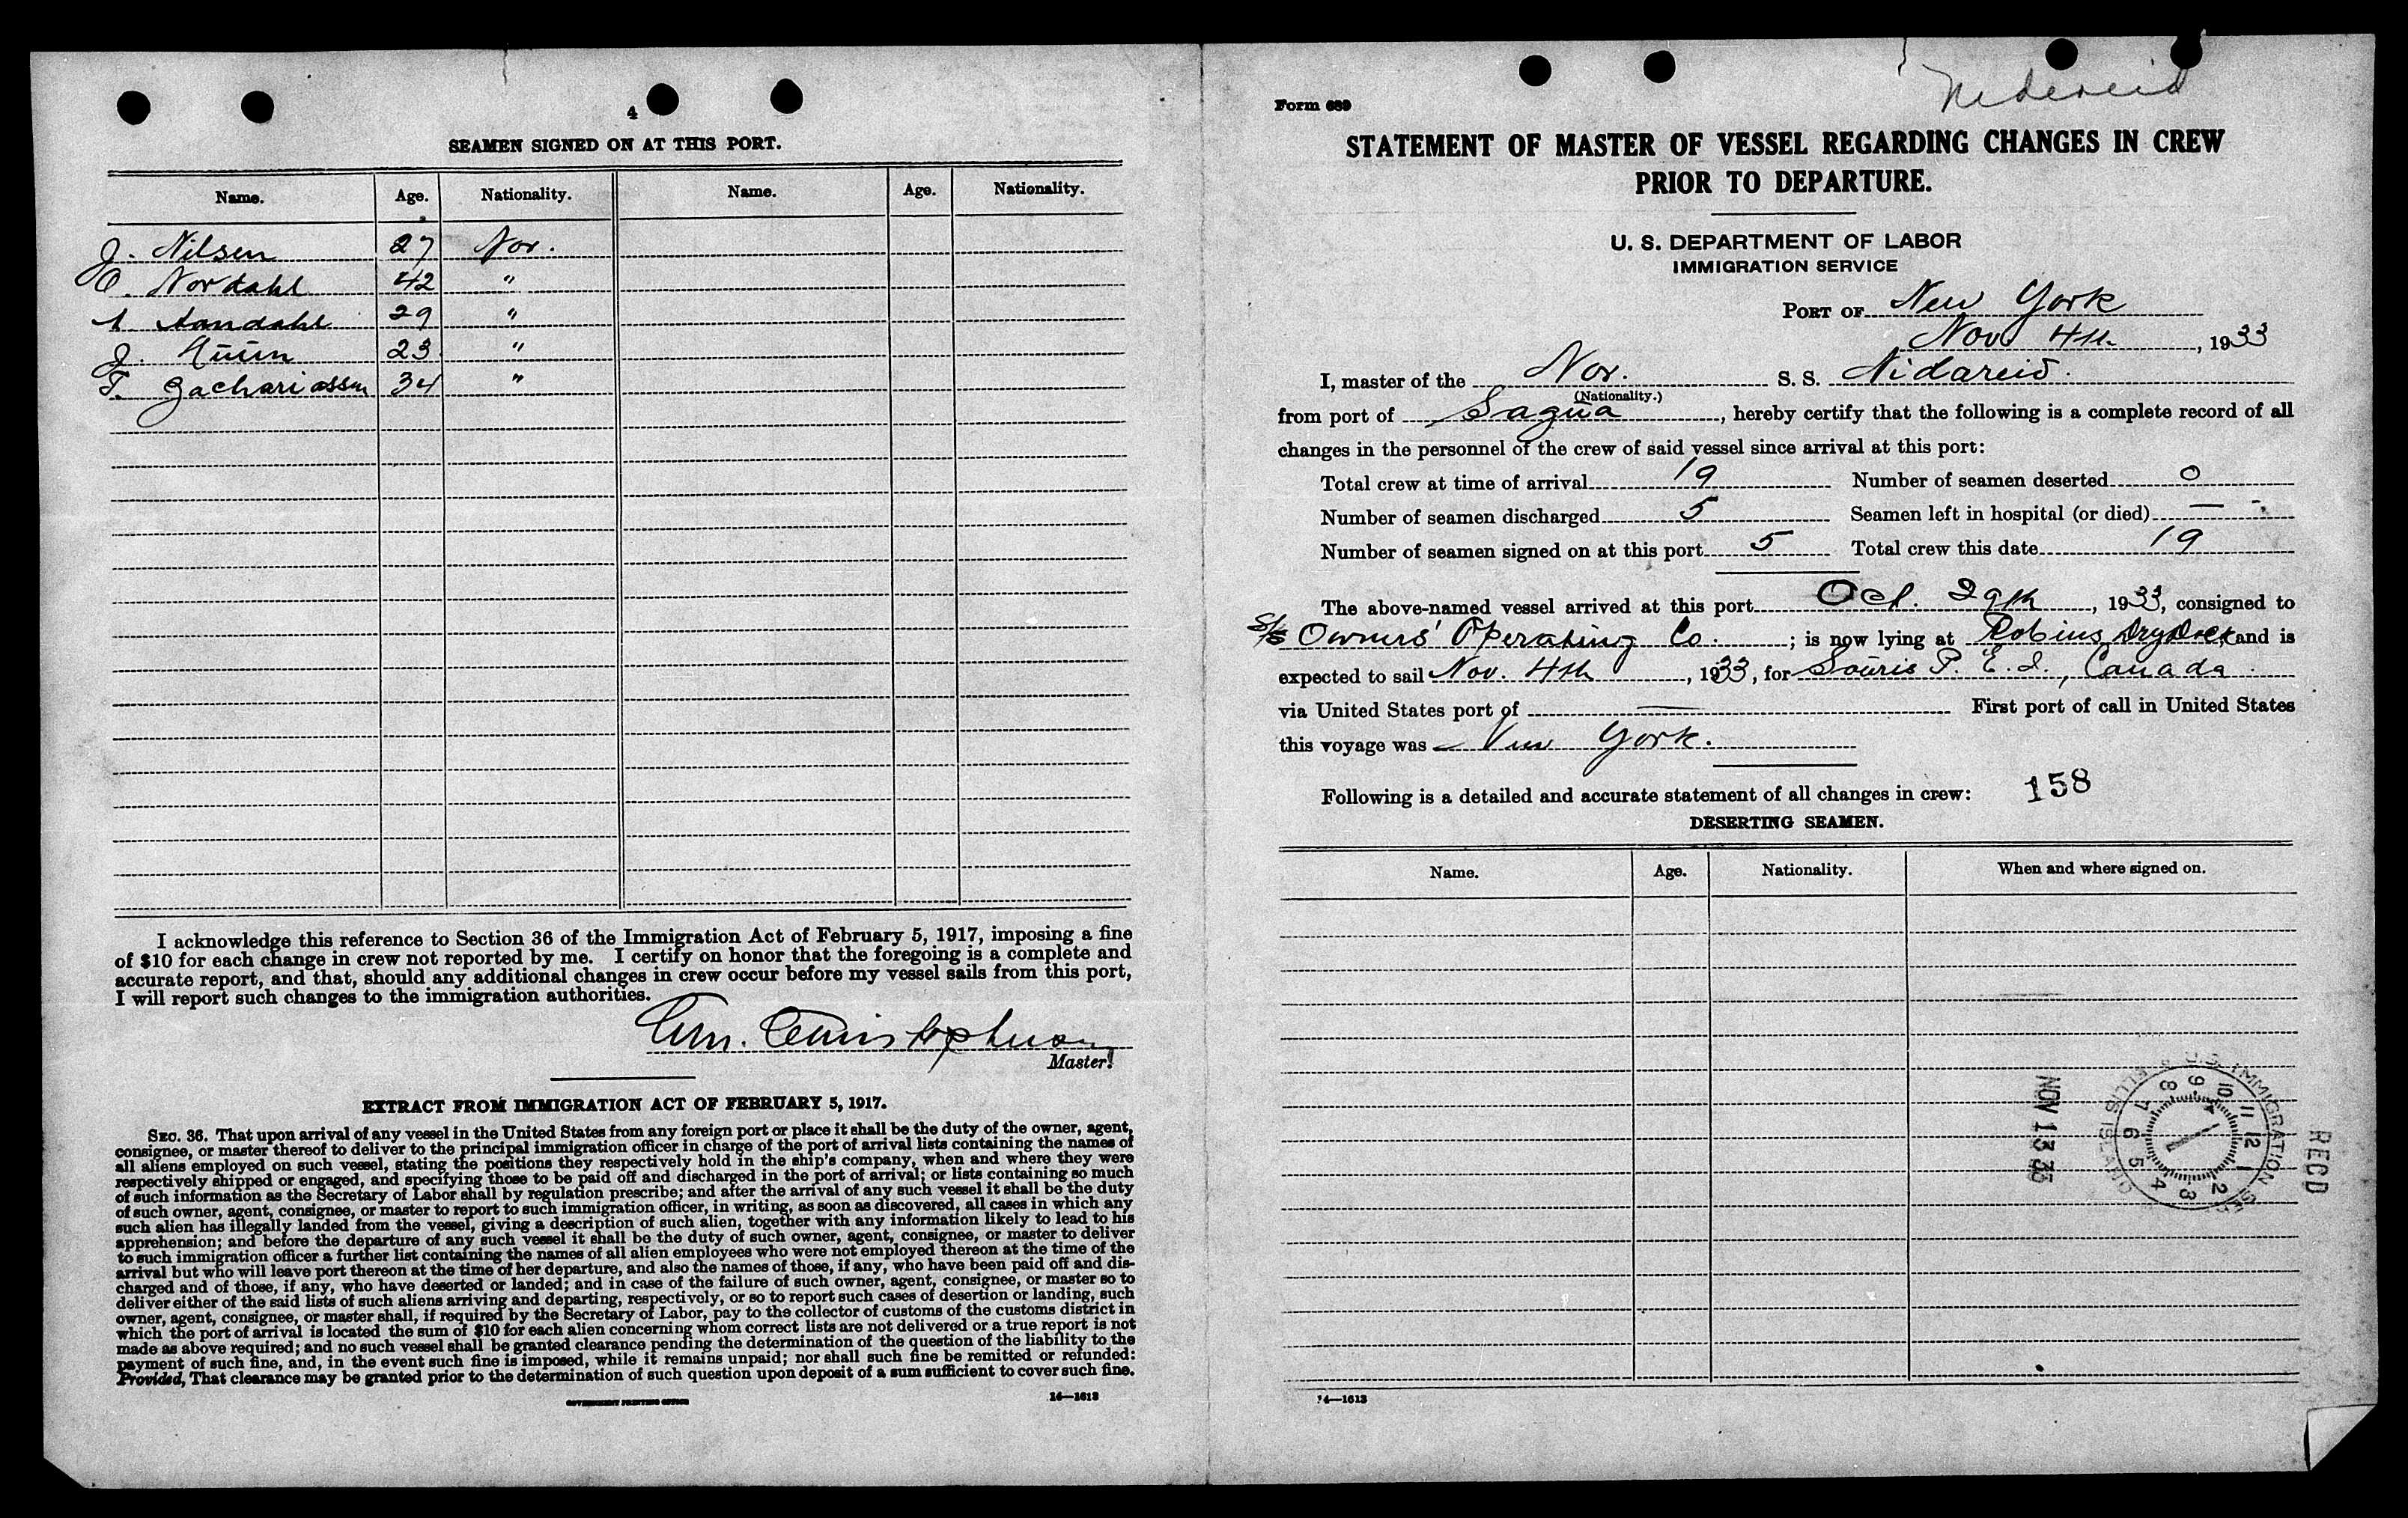 4
SEAMEN SIGNED ON AT THIS PORT.
Name. Age. Nationality. Name. Age. Nationality.
J. Nilsen 27 Nor.
O. Nordahl 42 "
A. Aandahl 29 "
J. 23 "
T. Zachariassen 34 "
I acknowledge this reference to Section 36 of the Immigration Act of February 5, 1917, imposing a fine
of $10 for each change in crew not reported by me. I certify on honor that the foregoing is a complete and
accurate report, and that, should any additional changes in crew occur before my vessel sails from this port,
I will report such changes to the immigration authorities.
Master.
EXTRACT FROM IMMIGRATION ACT OF FEBRUARY 5, 1917.
SEC. 36. That upon arrival of any vessel in the United States from any foreign port or place it shall be the duty of the owner, agent,
consignee, or master thereof to deliver to the principal immigration officer in charge of the port of arrival lists containing the names of
all aliens employed on such vessel, stating the positions they respectively hold in the ship's company, when and where they were
respectively shipped or engaged, and specifying those to be paid off and discharged in the port of arrival; or lists containing so much
of such information as the Secretary of Labor shall by regulation prescribe; and after the arrival of any such vessel it shall be the duty
of such owner, agent, consignee, or master to report to such immigration officer, in writing, as soon as discovered, all cases in which any
such alien has illegally landed from the vessel, giving a description of such alien, together with any information likely to lead to his
apprehension; and before the departure of any such vessel it shall be the duty of such owner, agent, consignee, or master to deliver
to such immigration officer a further list containing the names of all alien employees who were not employed thereon at the time of the
arrival but who will leave port thereon at the time of her departure, and also the names of those, if any, who have been paid off and dis-
charged and of those, if any, who have deserted or landed; and in case of the failure of such owner, agent, consignee, or master so to
deliver either of the said lists of such aliens arriving and departing, respectively, or so to report such cases of desertion or landing, such
owner, agent, consignee, or master shall, if required by the Secretary of Labor, pay to the collector of customs of the customs district in
which the port of arrival is located the sum of $10 for each alien concerning whom correct lists are not delivered or a true report is not
made as above required; and no such vessel shall be granted clearance pending the determination of the question of the liability to the
payment of such fine, and, in the event such fine is imposed, while it remains unpaid; nor shall such fine be remitted or refunded:
Provided, That clearance may be granted prior to the determination of such question upon deposit of a sum sufficient to cover such fine.
GOVERNMENT PRINTING OFFICE 14—1613
Nedereid
Form 689
STATEMENT OF MASTER OF VESSEL REGARDING CHANGES IN CREW
PRIOR TO DEPARTURE.
U. S. DEPARTMENT OF LABOR
IMMIGRATION SERVICE
PORT OF New York
Nov 4th, 1933
I, master of the Nor. S. S. Nidareid.
(Nationality.)
from port of Sagua, hereby certify that the following is a complete record of all
changes in the personnel of the crew of said vessel since arrival at this port:
Total crew at time of arrival 19 Number of seamen deserted 0
Number of seamen discharged 5 Seamen left in hospital (or died) —
Number of seamen signed on at this port 5 Total crew this date 19
The above-named vessel arrived at this port Oct. 29th, 1933, consigned to
S/S Owners' Operating Co.; is now lying at Robins Dry Dock and is
expected to sail Nov. 4th, 1933, for Souris P. E. I., Canada.
via United States port of — First port of call in United States
this voyage was New York.
Following is a detailed and accurate statement of all changes in crew: 158
DESERTING SEAMEN.
Name. Age. Nationality. When and where signed on.
RECD
U.S. IMMIGRATION SER ELLIS ISLAND
1 2 3 4 5 6 7 8 9 10 11 12
NOV 13 33
14—1613